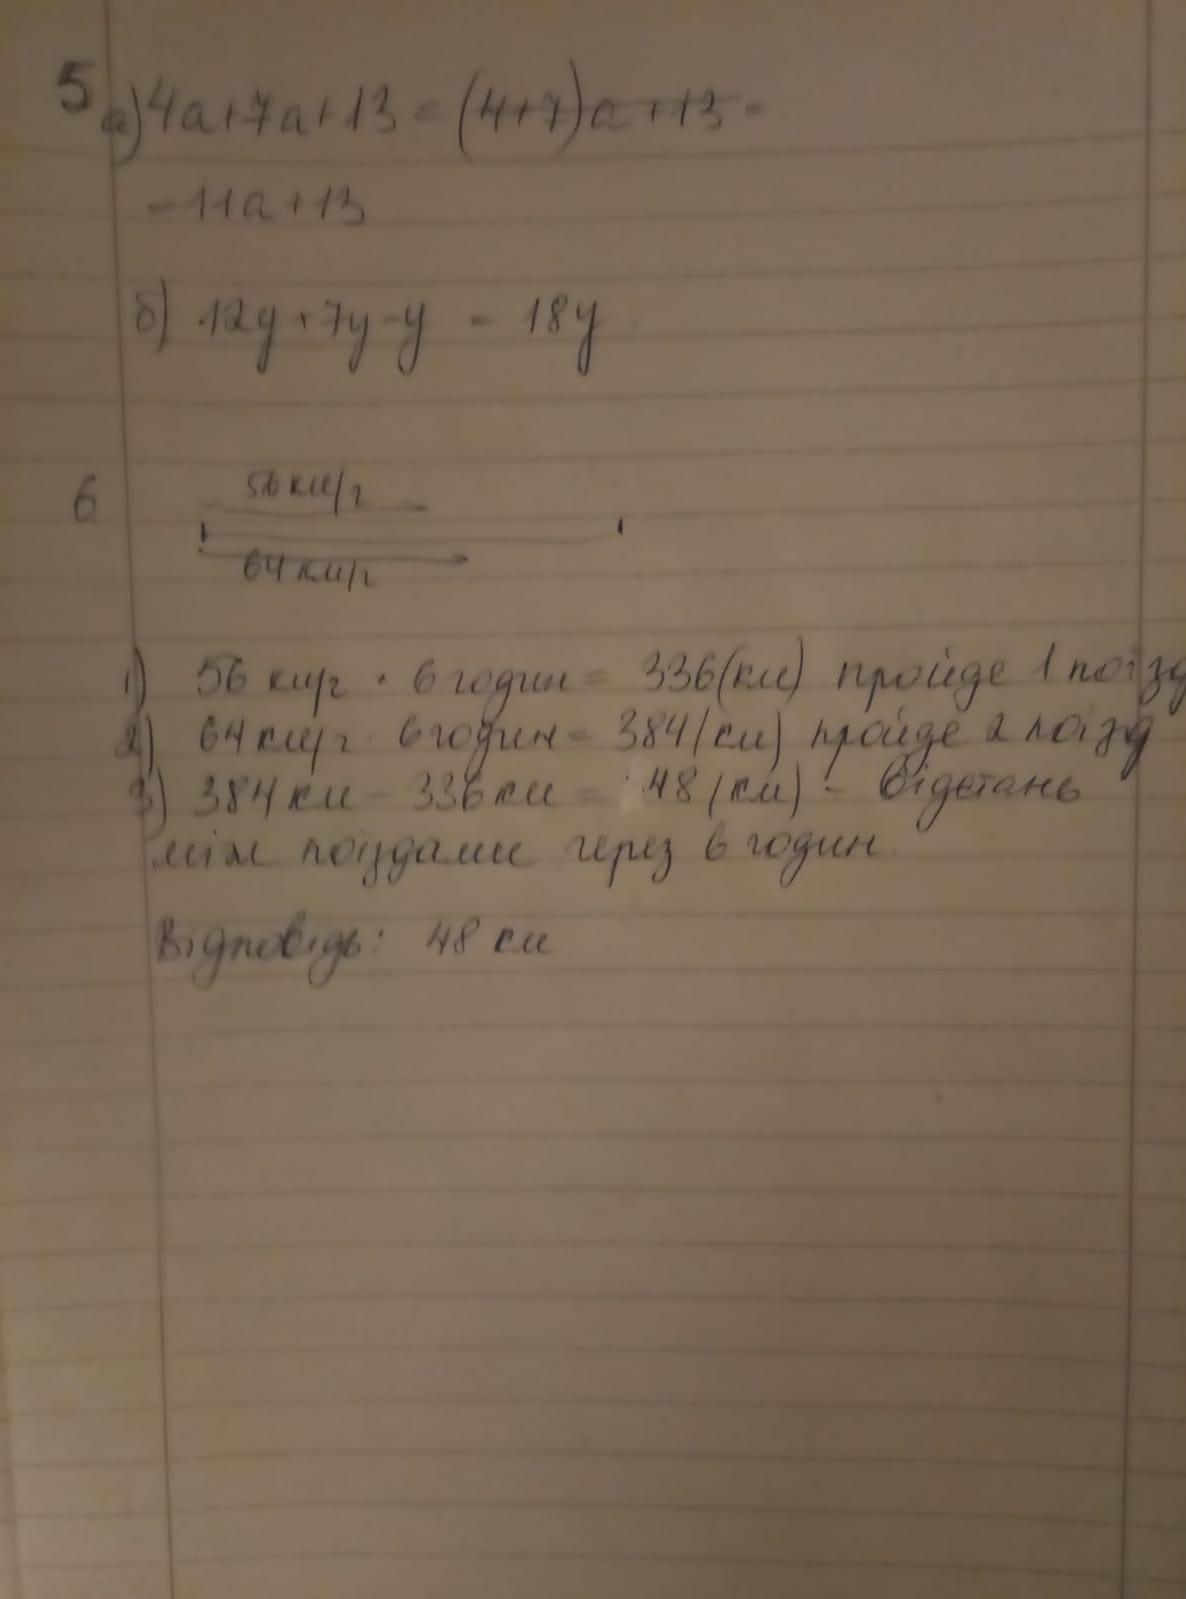 5 а) 4a+7a+13 = (4+7)a+13 =
= 11a+13
б) 12y+7y-y = 18y
6
56 км/г
64 км/г
1) 56 км/г · 6 годин = 336 (км) пройде 1 поїзд
2) 64 км/г · 6 годин = 384 (км) пройде 2 поїзд
3) 384 км - 336 км = 48 (км) - відстань
між поїздами через 6 годин
Відповідь: 48 км